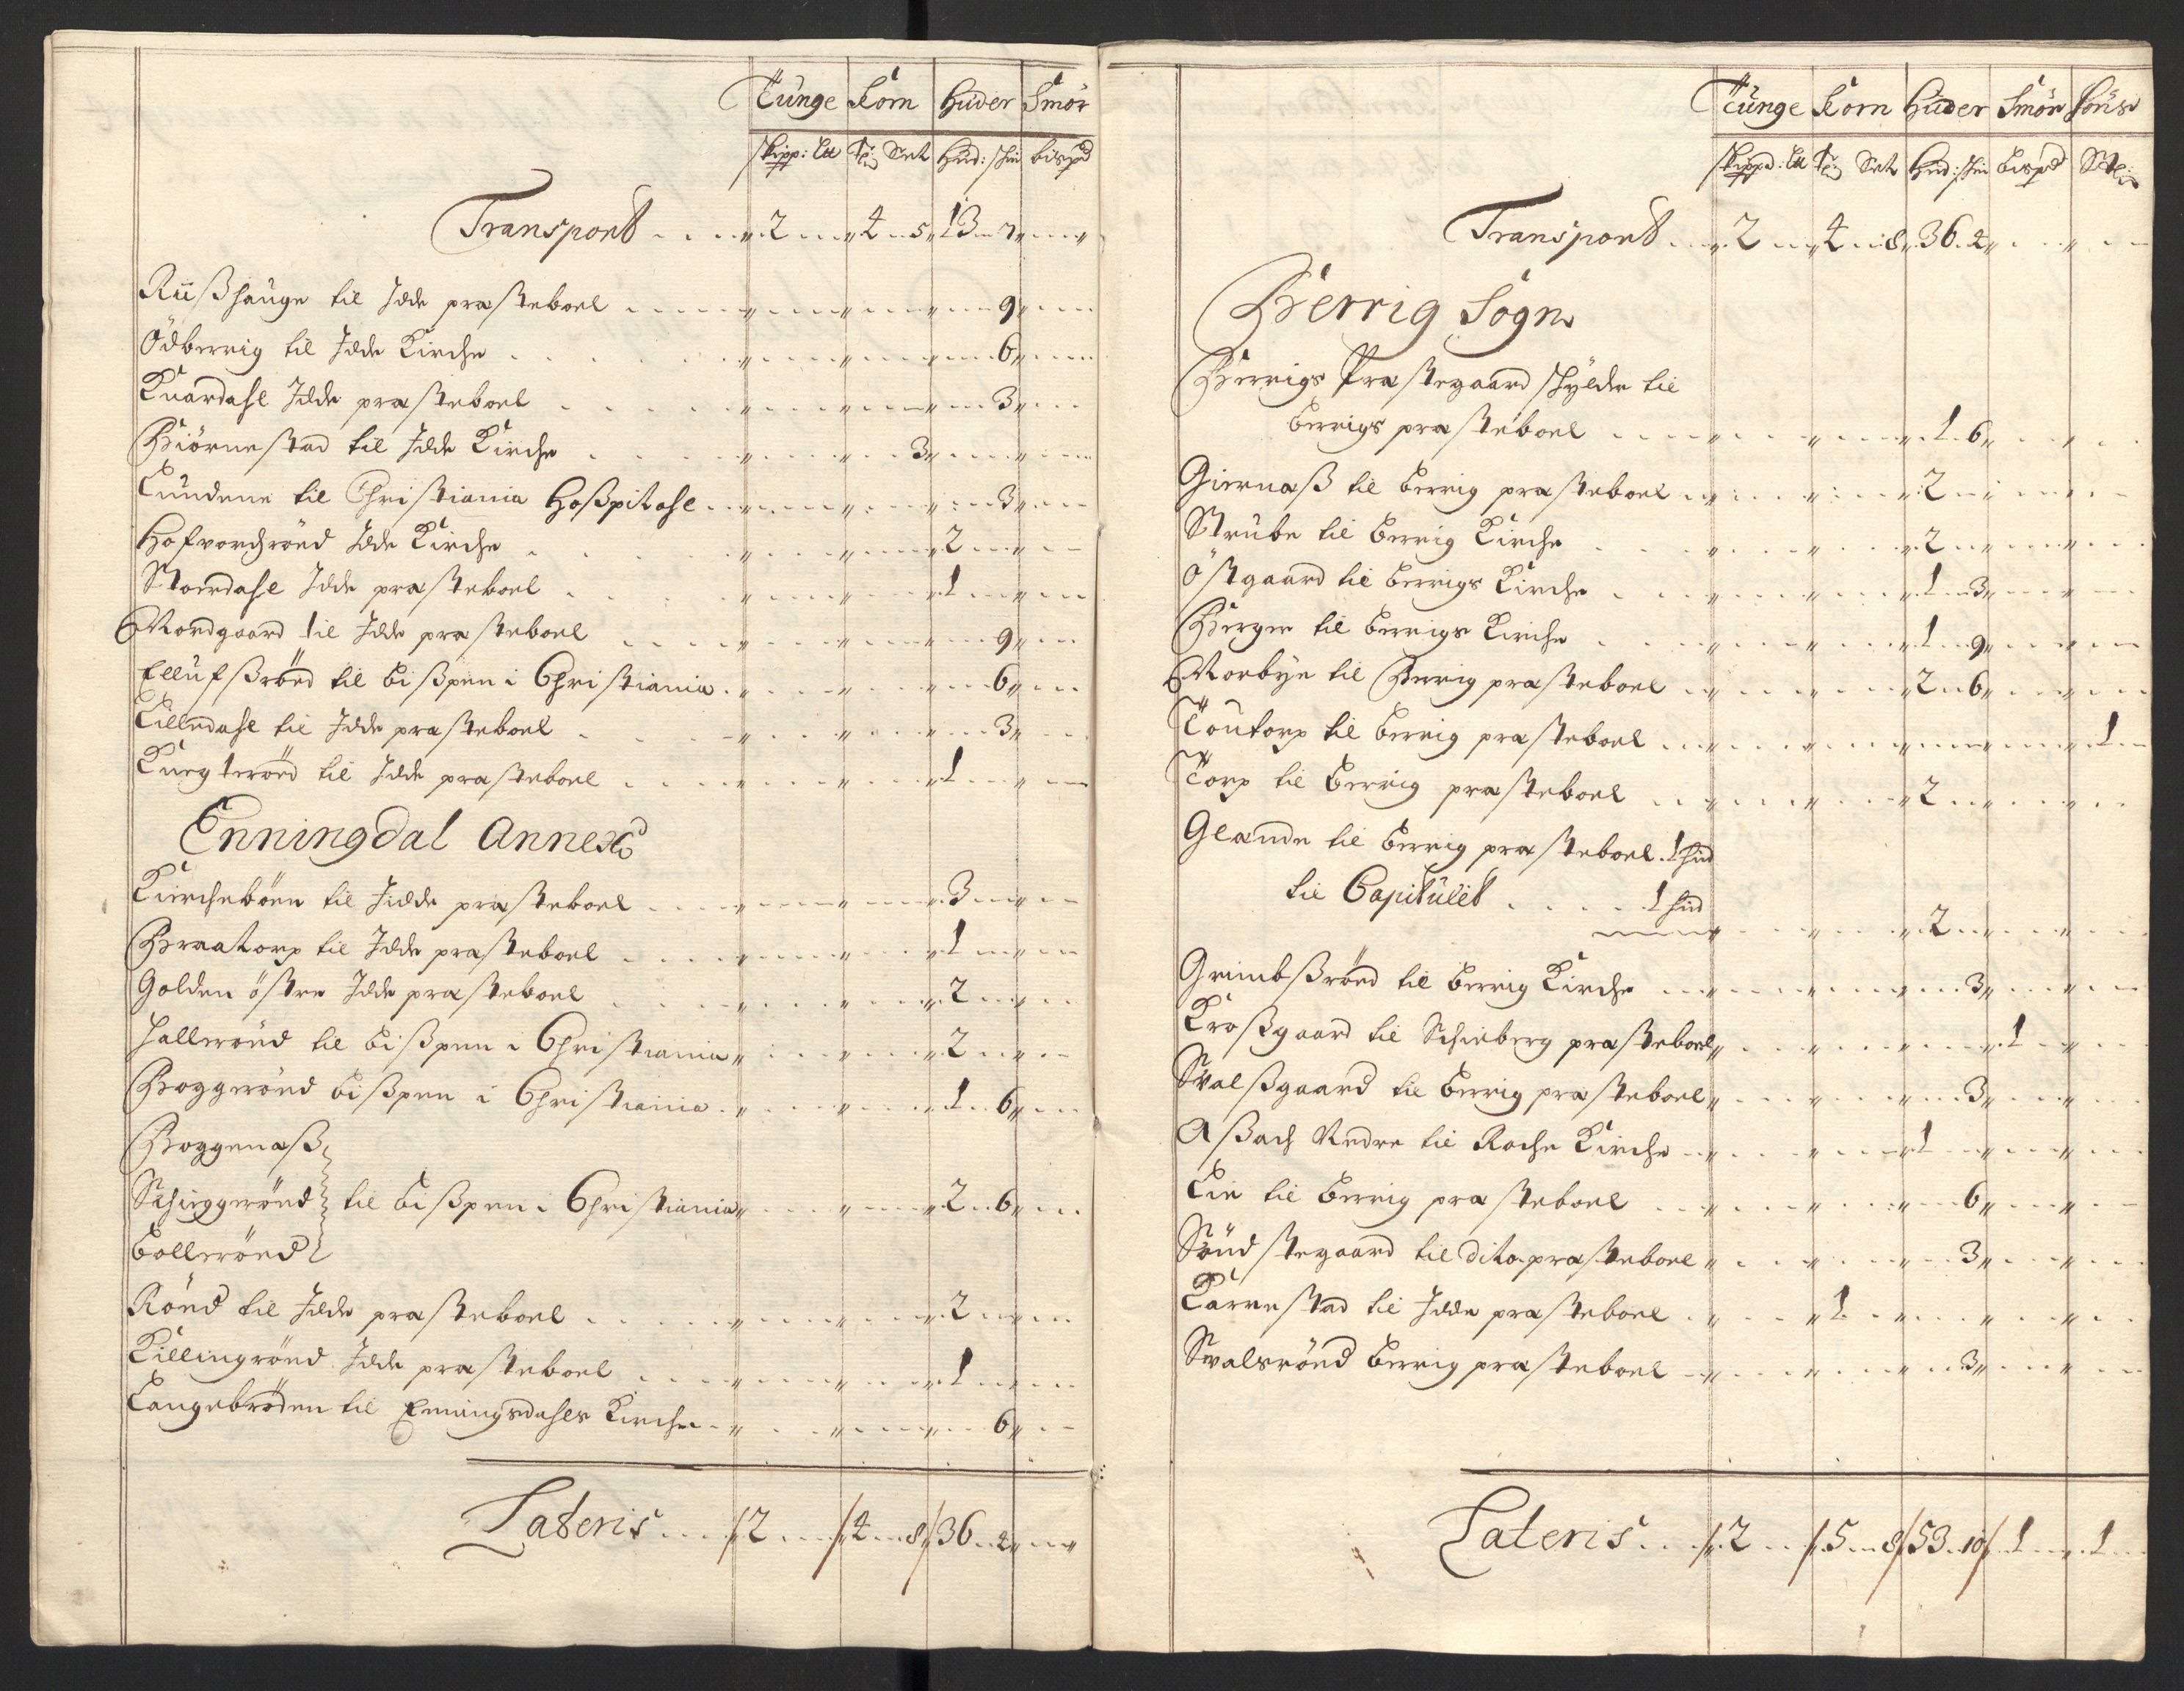 Tunge Korn Huder Smör
Skipp: L℔ Tℓr Set Hud: skin bispd
Transport 2 4 5 13 7
Riißhauge til Idde præsteboel 9
Ödberrig til Idde Kirche 6
Knardahl Idde præsteboel 3
Biörnestad til Idde Kirche 3
Lundene til Christiania Hoßpitahl 3
Hofvordrönd Idde Kirche 2
Stoerdahl Idde præsteboel 1
Nordgaard til Idde præsteboel 9
Ellufßrönd til bißpen i Christiania 6
Lilledahl til Idde præsteboel 3
Knegterönd til Idde præsteboel 1
Enningdal Annex
Kircheböen til Jidde præsteboel 3
Braatorp til Idde præsteboel 1
Holden östre Idde præsteboel 2
Hallerönd til bißpen i Christiania 2
Boggerönd bißpen i Christiania 1 6
Boggenæß
Schiggerönd til bißpen i Christiania 2 6
Bollerönd
Rönd til Idde præsteboel 2
Killingrönd Idde præsteboel 1
Langebröden til Enningsdahls Kirche 6
Lateris 2 4 8 36 4
Tunge Korn Huder Smör
Skippd: L℔ Set Hud: skin bispd
Transport 2 4 8 36 4
Berrig Sogn
Berrigs Præstegaard skylder til
berrigs præsteboel 1 6
Giernæß til berrig præsteboel 2
Strube til berrig Kirche 2
Östgaard til berrigs Kirche 1 3
Berger til berrigs Kirche 1 9
Norbye til Berrig præsteboel 2 6
Toutorp til berrig præsteboel 1
Torp til berrig præsteboel 2
Glande til berrig præsteboel 1 hud
til Capitulet 1 hud
2
Grimbßrönd til berrig Kirche 3
Kroßgaard til Schieberg præsteboel 1
Svalßgaard til berrig præsteboel 3
Aßach Nedre til Rache Kirche 1
Lie til berrig præsteboel 6
Söndstegaard til dito præsteboel 3
Karrestad til Idde præsteboel 1
Svalsrönd berrig præsteboel 3
Lateris 2 5 8 53 10 1 1